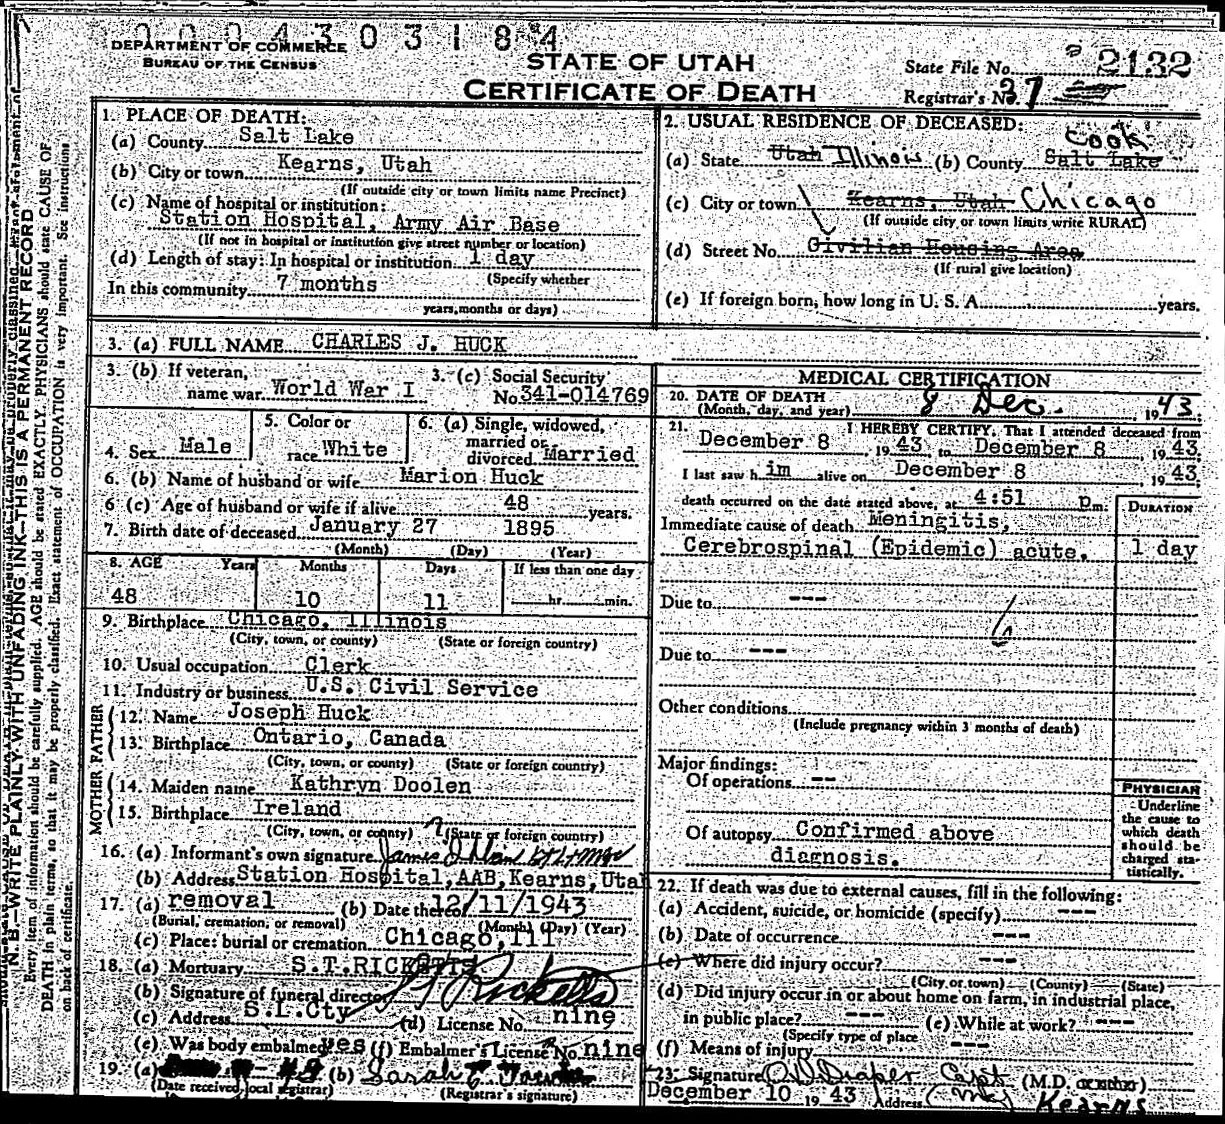 0004303184
DEPARTMENT OF COMMERCE
BUREAU OF THE CENSUS
STATE OF UTAH
CERTIFICATE OF DEATH
State File No. 2132
Registrar's No. 37
N. B.—WRITE PLAINLY WITH UNFADING INK—THIS IS A PERMANENT RECORD
Every item of information should be carefully supplied. AGE should be stated EXACTLY. PHYSICIANS should state CAUSE OF
DEATH in plain terms, so that it may be properly classified. Exact statement of OCCUPATION is very important. See instructions
on back of certificate.
1. PLACE OF DEATH:
(a) County Salt Lake
(b) City or town Kearns, Utah
(If outside city or town limits name Precinct)
(c) Name of hospital or institution:
Station Hospital, Army Air Base
(If not in hospital or institution give street number or location)
(d) Length of stay: In hospital or institution 1 day
(Specify whether
In this community 7 months
years, months or days)
2. USUAL RESIDENCE OF DECEASED:
Cook
(a) State Utah Illinois (b) County Salt Lake
(c) City or town Kearns, Utah Chicago
(If outside city or town limits write RURAL)
(d) Street No. Civilian Housing Area
(If rural give location)
(e) If foreign born, how long in U. S. A. years.
3. (a) FULL NAME CHARLES J. HUCK
3. (b) If veteran, name war World War I
3. (c) Social Security No. 341-014769
4. Sex Male
5. Color or race White
6. (a) Single, widowed, married or divorced Married
6. (b) Name of husband or wife Marion Huck
6 (c) Age of husband or wife if alive 48 years.
7. Birth date of deceased January 27 1895
(Month) (Day) (Year)
8. AGE Years Months Days If less than one day
48 10 11 hr. min.
9. Birthplace Chicago, Illinois
(City, town, or county) (State or foreign country)
10. Usual occupation Clerk
11. Industry or business U.S. Civil Service
FATHER
12. Name Joseph Huck
13. Birthplace Ontario, Canada
(City, town, or county) (State or foreign country)
MOTHER
14. Maiden name Kathryn Doolen
15. Birthplace Ireland
(City, town, or county) (State or foreign country)
16. (a) Informant's own signature James
(b) Address Station Hospital, AAB, Kearns, Utah
17. (a) removal (b) Date thereof 12/11/1943
(Burial, cremation, or removal) (Month) (Day) (Year)
(c) Place: burial or cremation Chicago, Ill
18. (a) Mortuary S.T.RICKETTS
(b) Signature of funeral director Ricketts
(c) Address S.L.Cty (d) License No. nine
(e) Was body embalmed yes (f) Embalmer's License No. nine
19. (a) (b) Sarah E.
(Date received local registrar) (Registrar's signature)
MEDICAL CERTIFICATION
20. DATE OF DEATH
(Month, day, and year) 8 Dec. 1943.
21. I HEREBY CERTIFY, That I attended deceased from
December 8 1943 to December 8 1943.
I last saw him alive on December 8 1943.
death occurred on the date stated above, at 4:51 p.m.
DURATION
Immediate cause of death Meningitis,
Cerebrospinal (Epidemic) acute. 1 day
Due to ---
6
Due to ---
Other conditions
(Include pregnancy within 3 months of death)
Major findings:
Of operations --
Of autopsy Confirmed above
diagnosis.
PHYSICIAN
Underline
the cause to
which death
should be
charged sta-
tistically.
22. If death was due to external causes, fill in the following:
(a) Accident, suicide, or homicide (specify) ---
(b) Date of occurrence ---
(c) Where did injury occur? ---
(City or town) (County) (State)
(d) Did injury occur in or about home on farm, in industrial place,
in public place? --- (e) While at work? ---
(Specify type of place
(f) Means of injury ---
23. Signature Draper Capt (M.D. or other)
December 10 1943 Address Kearns